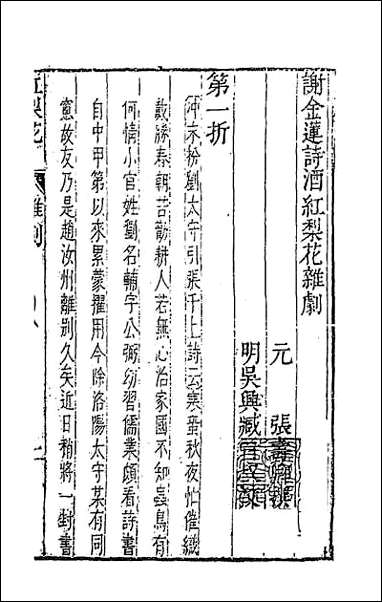 謝金蓮詩酒紅梨花雜劇
元　張壽卿撰
明吳興臧晉叔校
第一折
沖末扮劉太守引張千上詩云寒蛩秋夜忙催織
戴勝春朝苦勸耕人若無心治家國不知蟲鳥有
何情小官姓劉名輔字公弼幼習儒業頗看詩書
自中甲第以來累蒙擢用今除洛陽太守某有同
窻故友乃是趙汝州離別久矣近日稍將一封書
紅梨花
雜劇